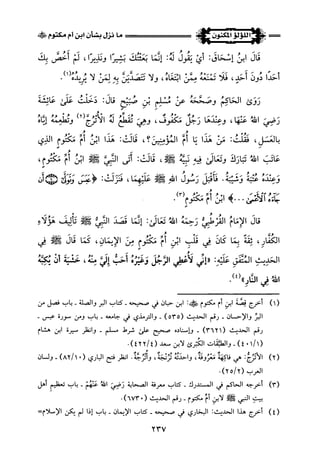 ما نزل بشأن ابن أم مكتوم ﷺ
اللؤلؤ المكنون
قَالَ ابنُ إِسْحَاقَ: أيْ: يُقُولُ لَهُ: إنَّمَا بَعَثْتُكَ بَشِيرًا ونَذِيرًا، لَمْ أَخُصَّ بِكَ
أحدًا دُونَ أَحَدٍ، فَلَا تَمْنَعْهُ مِمَّنِ ابْتَغَاهُ، ولا تَتَصَدَّيَنَّ بِهِ لِمَنْ لا يُرِيدُهُ(١).
رَوَى الحَاكِمُ وصَحَّحَهُ عنْ مُسْلِمِ بْنِ صُبَيْحٍ قَالَ: دَخَلْتُ عَلَى عَائِشَةَ
رَضِيَ اللهُ عَنْهَا، وعِنْدَهَا رَجُلٌ مَكْفُوفٌ، وهِيَ تُقَطِّعُ لَهُ الأُتْرُجَّ(٢) وتُطْعِمُهُ إِيَّاهُ
بالعَسَلِ، فَقُلْتُ: مَنْ هَذَا يَا أُمَّ المُؤْمِنِينَ؟، قَالَتْ: هَذَا ابْنُ أُمِّ مَكْتُومٍ الذِي
عَاتَبَ اللهُ تَبَارَكَ وتَعَالَى فِيهِ نَبِيَّهُ ﷺ، قَالَتْ: أَتَى النَّبِيَّ ﷺ ابْنُ أُمِّ مَكْتُومٍ،
وعِنْدَهُ عُتْبَةُ وشَيْبَةُ، فَأَقْبَلَ رَسُولُ اللهِ ﷺ عَلَيْهِمَا، فَنَزَلَتْ: ﴿عَبَسَ وَتَوَلَّىٰٓ ۝ أَن
جَآءَهُ ٱلْأَعْمَىٰ...﴾ ابْنُ أُمِّ مَكْتُومٍ(٣).
قَالَ الإمَامُ القُرْطُبِيُّ رَحِمَهُ اللهُ تَعَالَى: إنَّمَا قَصَدَ النَّبِيُّ ﷺ تَأْلِيفَ هَؤُلَاءِ
الكُفَّارِ، ثِقَةً بِمَا كَانَ فِي قَلْبِ ابْنِ أُمِّ مَكْتُومٍ مِنَ الإِيمَانِ، كَمَا قَالَ ﷺ فِي
الحَدِيثِ المُتَّفَقِ عَلَيْهِ: «إنِّي لَأُعْطِي الرَّجُلَ وَغَيْرُهُ أَحَبُّ إِلَيَّ مِنْهُ، خَشْيَةَ أنْ يَكُبَّهُ
اللهُ فِي النَّارِ»(٤).
(١) أخرج قِصَّةَ ابنِ أم مكتوم ﷺ: ابن حبان في صحيحه ـ كتاب البر والصلة ـ باب فصل من
البِرِّ والإحسان ـ رقم الحديث (٥٣٥) ـ والترمذي في جامعه ـ باب ومن سورة عبس ـ
رقم الحديث (٣٦٢١) ـ وإسناده صحيح على شرط مسلم ـ وانظر سيرة ابن هشام
(٤٠١/١) ـ والطبَّقَات الكُبْرَى لابن سعد (٤٢٢/٤).
(٢) الأُتْرُجُّ: هي فَاكِهَةٌ مَعْرُوفَةٌ، واحدَتُهُ تُرُنْجَةٌ، وأُتْرُجَّةٌ. انظر فتح الباري (٨٢/١٠) ـ ولسان
العرب (٢٥/٢).
(٣) أخرجه الحاكم في المستدرك ـ كتاب معرفة الصحابة رَضِيَ اللهُ عَنْهُمْ ـ باب تعظيم أهل
بيت النبي ﷺ لابنِ أُمِّ مكتومٍ ـ رقم الحديث (٦٧٣٠).
(٤) أخرج هذا الحديث: البخاري في صحيحه ـ كتاب الإيمان ـ باب إذا لم يكن الإسلام=
٢٣٧